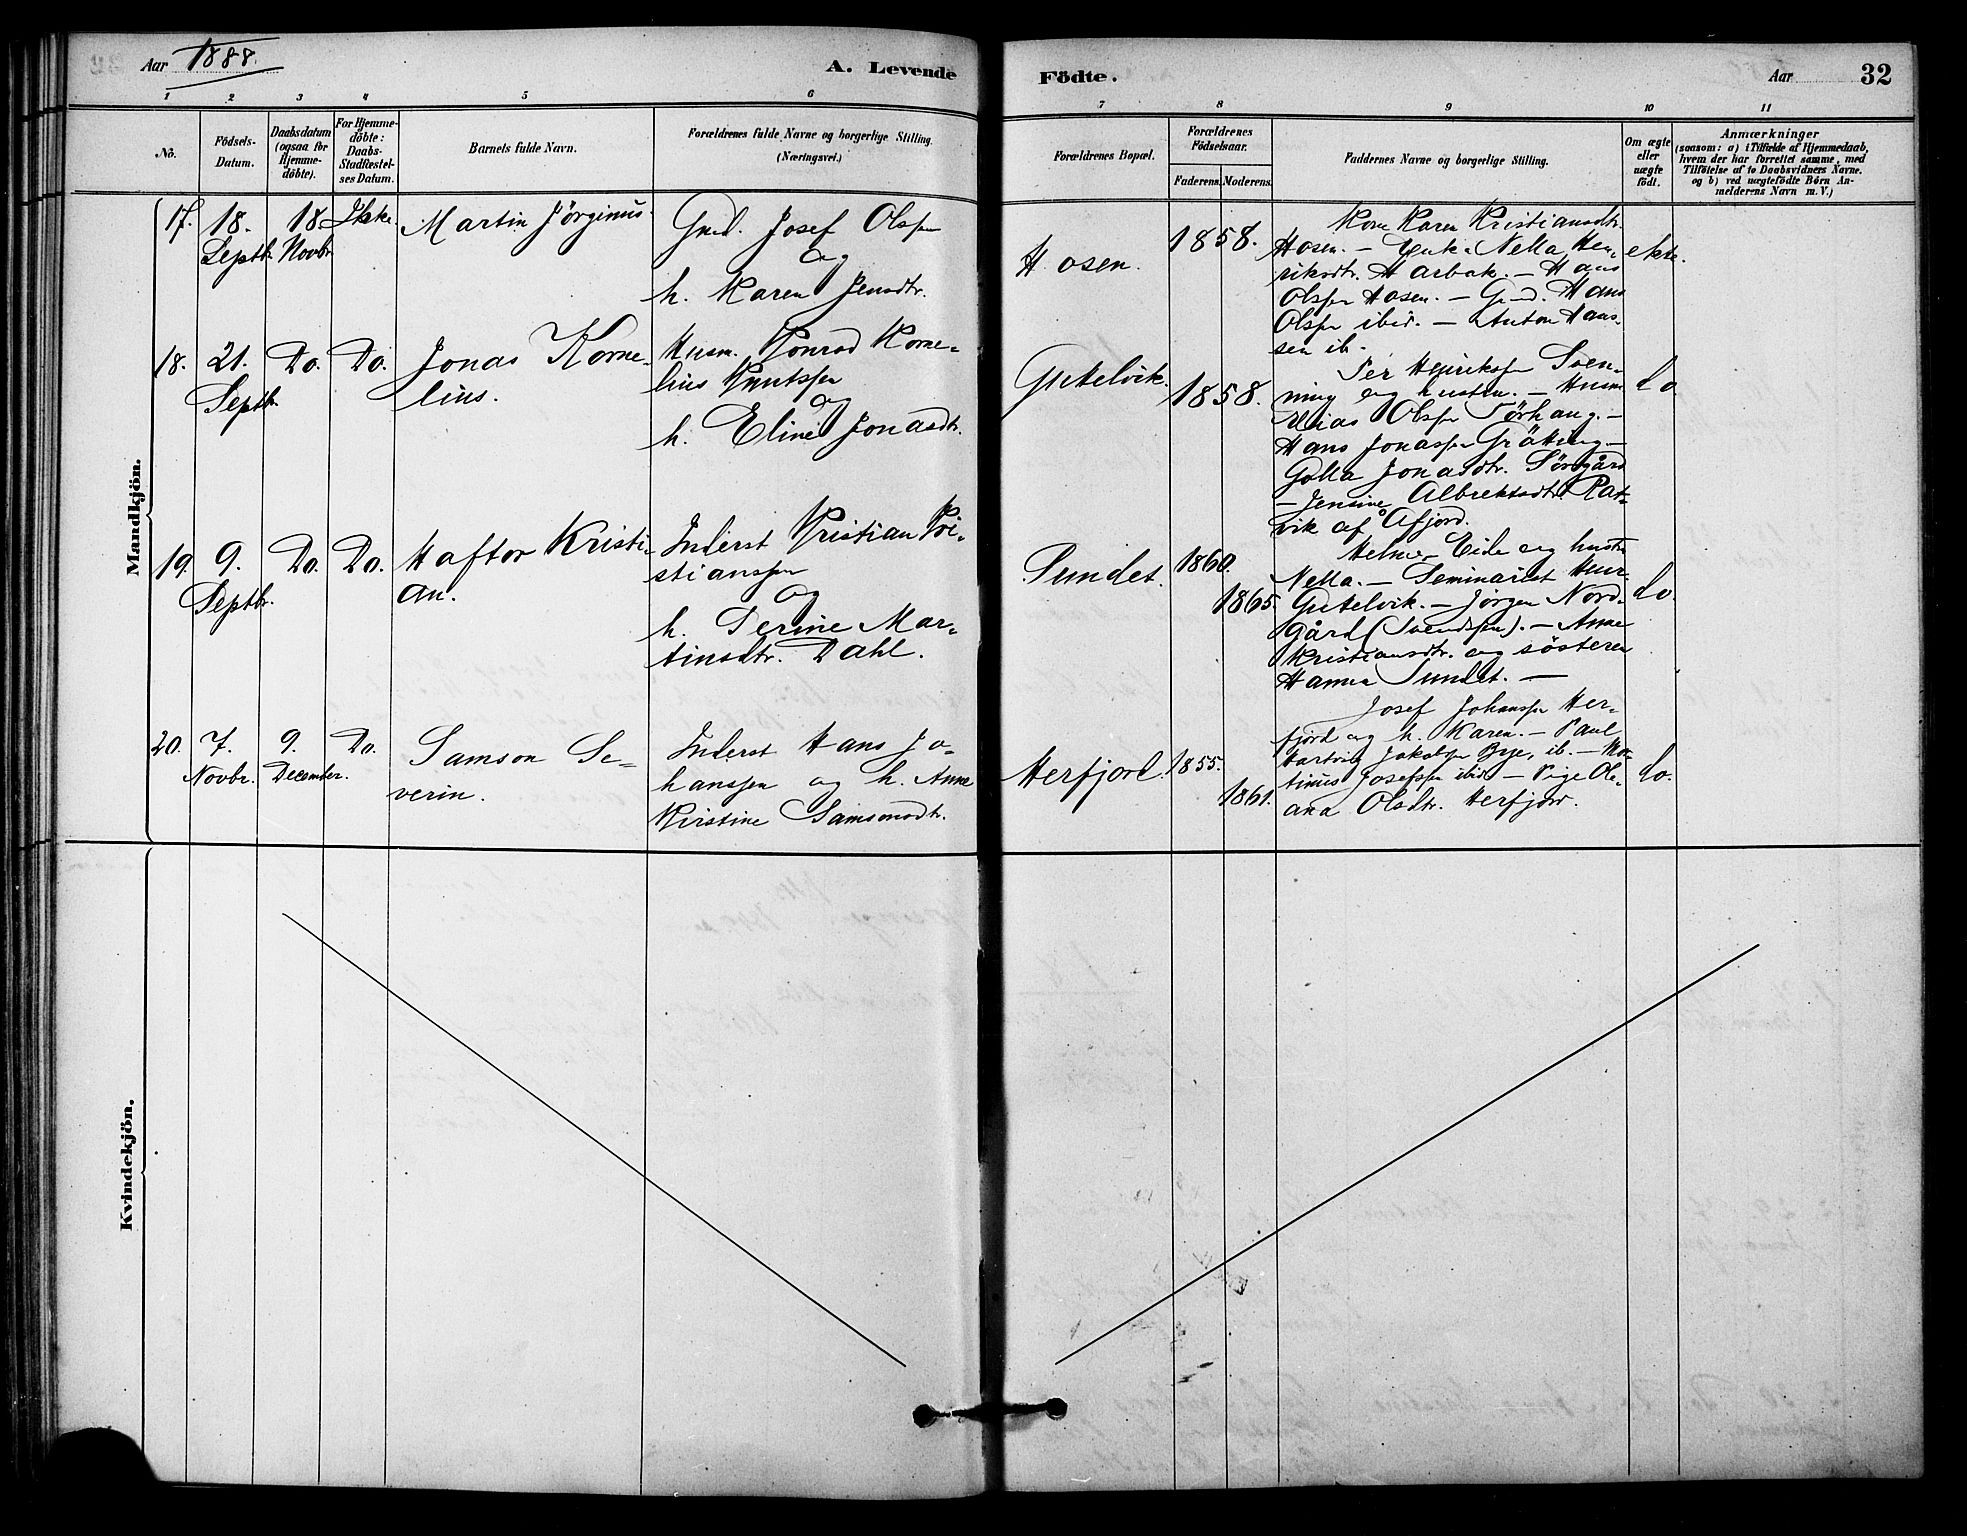 Aar 1888.
A. Levende
Födte.
Aar
32
1 2 3 4 5 6 7 8 9 10 11
No.
Födsels-
Datum.
Daabsdatum
(ogsaa for
Hjemme-
döbte).
For Hjemme-
döbte:
Daabs-
Stadfæstel-
ses Datum.
Barnets fulde Navn.
Forældrenes fulde Navne og borgerlige Stilling.
(Næringsvei.)
Forældrenes Bopæl.
Forældrenes
Födselsaar.
Faderens.
Moderens.
Faddernes Navne og borgerlige Stilling.
Om ægte
eller
uægte
födt.
Anmærkninger
(saasom: a) i Tilfælde af Hjemmedaab,
hvem der har forrettet samme, med
Tilföielse af to Daabsvidners Navne.
og b) ved uægtefödte Börn An-
melderens Navn m. V.)
Mandkjön.
17.
18.
Septbr.
18
Novbr.
Ikke.
Martin Jörginus.
Gmd. Josef Olssen
og
h. Karen Jensdtr.
Hosen.
1858.
Kone Karen Kristiansdtr.
Hosen. – Enke Nella Hen-
riksdtr. Harbak. – Hans
Olssen Hosen. – Gmd. Hans
Olssen ibid. – Anton Hans-
sen ib.
ekte.
18.
21.
Septbr.
Do.
Do.
Jonas Korne-
lius.
Husm. Konrad Korne-
lius Knutssen
og
h. Eline Jonasdtr.
Guttelvik.
1858.
Per Henriksen Sven-
ning og hustru. – Husm.
Elias Olssen Törhaug. –
Hans Jonassen Gräting –
Golla Jonasdtr. Sörgård
– Jensine Albrektsdtr. Rat-
vik af Åfjord.
Do.
19.
9.
Septbr.
Do.
Do.
Haftor Kristi-
an.
Inderst Kristian Kri-
stianssen
og
h. Serine Mar-
tinsdtr. Dahl.
Sundet.
1860.
1865.
Helmer Eide og hustru
Nella. – Seminarist
Guttelvik. – Jörgen Nord-
gård (Svendssen). – Anne
Kristiansdtr. og söstren
Hanna Sundet. –
Do.
20.
7.
Novbr.
9.
December.
Do.
Samson Se-
verin.
Inderst Hans Jo-
hanssen og h. Anne
Kirstine Samsonsdtr.
Herfjord.
1855.
1861.
Josef Johanssen Her-
fjord og h. Karen. – Paul
Hartvig Jakobsen Bye, ib. – Mar-
tinus Josefssen ibid. – Pige Ole-
ana Olsdtr. Herfjord.
Do.
Kvindekjön.